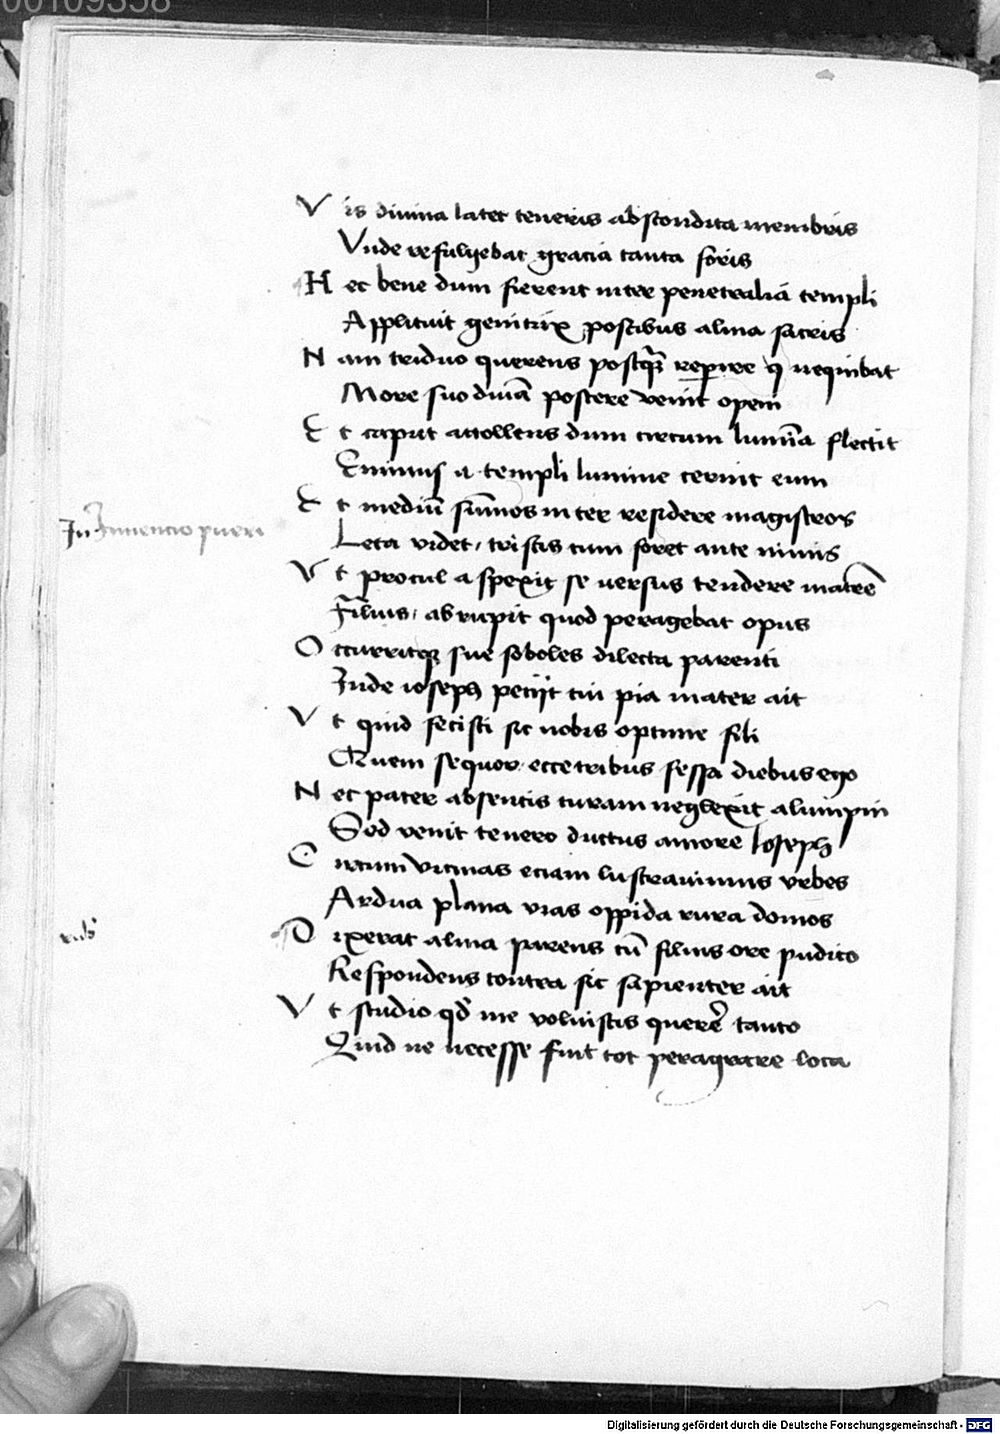 00109358
Vis diuina latet teneris abscondita membris
Vnde refulgebat gracia tanta foris
Hec bene dum fierent inter penetralia templi
Applicuit genitrix postibus alma sacris
Nam triduo querens postquã reperire nequibat
More suo diuinã poscere venit opem
Et caput attollens dum circum lumĩa flectit
Eminus a templi lumine cernit eum
Et mediũ sũmos inter residere magistros
Inuencio pueri
Leta videt, tristis cum foret ante nimis
Vt procul aspexit se uersus tendere matrẽ
Filius, abrupit quod peragebat opus
Occurritqꝫ sue soboles dilecta parenti
Inde ioseph petijt cui pia mater ait
Vt quid fecisti sic nobis optime fili
Quem sequor ecce tribus fessa diebus ego
Nec pater absentis curam neglexit alumpni
Sed venit tenero ductus amore Ioseph
Circum vicinas eciam lustrauimus vrbes
Ardua plana vias oppida rura domos
Dixerat alma parens cũ filius ore pudico
Respondens contra sic sapienter ait
Vt studio qđ me voluistis querere tanto
Quid ne necesse fuit tot peragrare loca
Digitalisierung gefördert durch die Deutsche Forschungsgemeinschaft - DFG